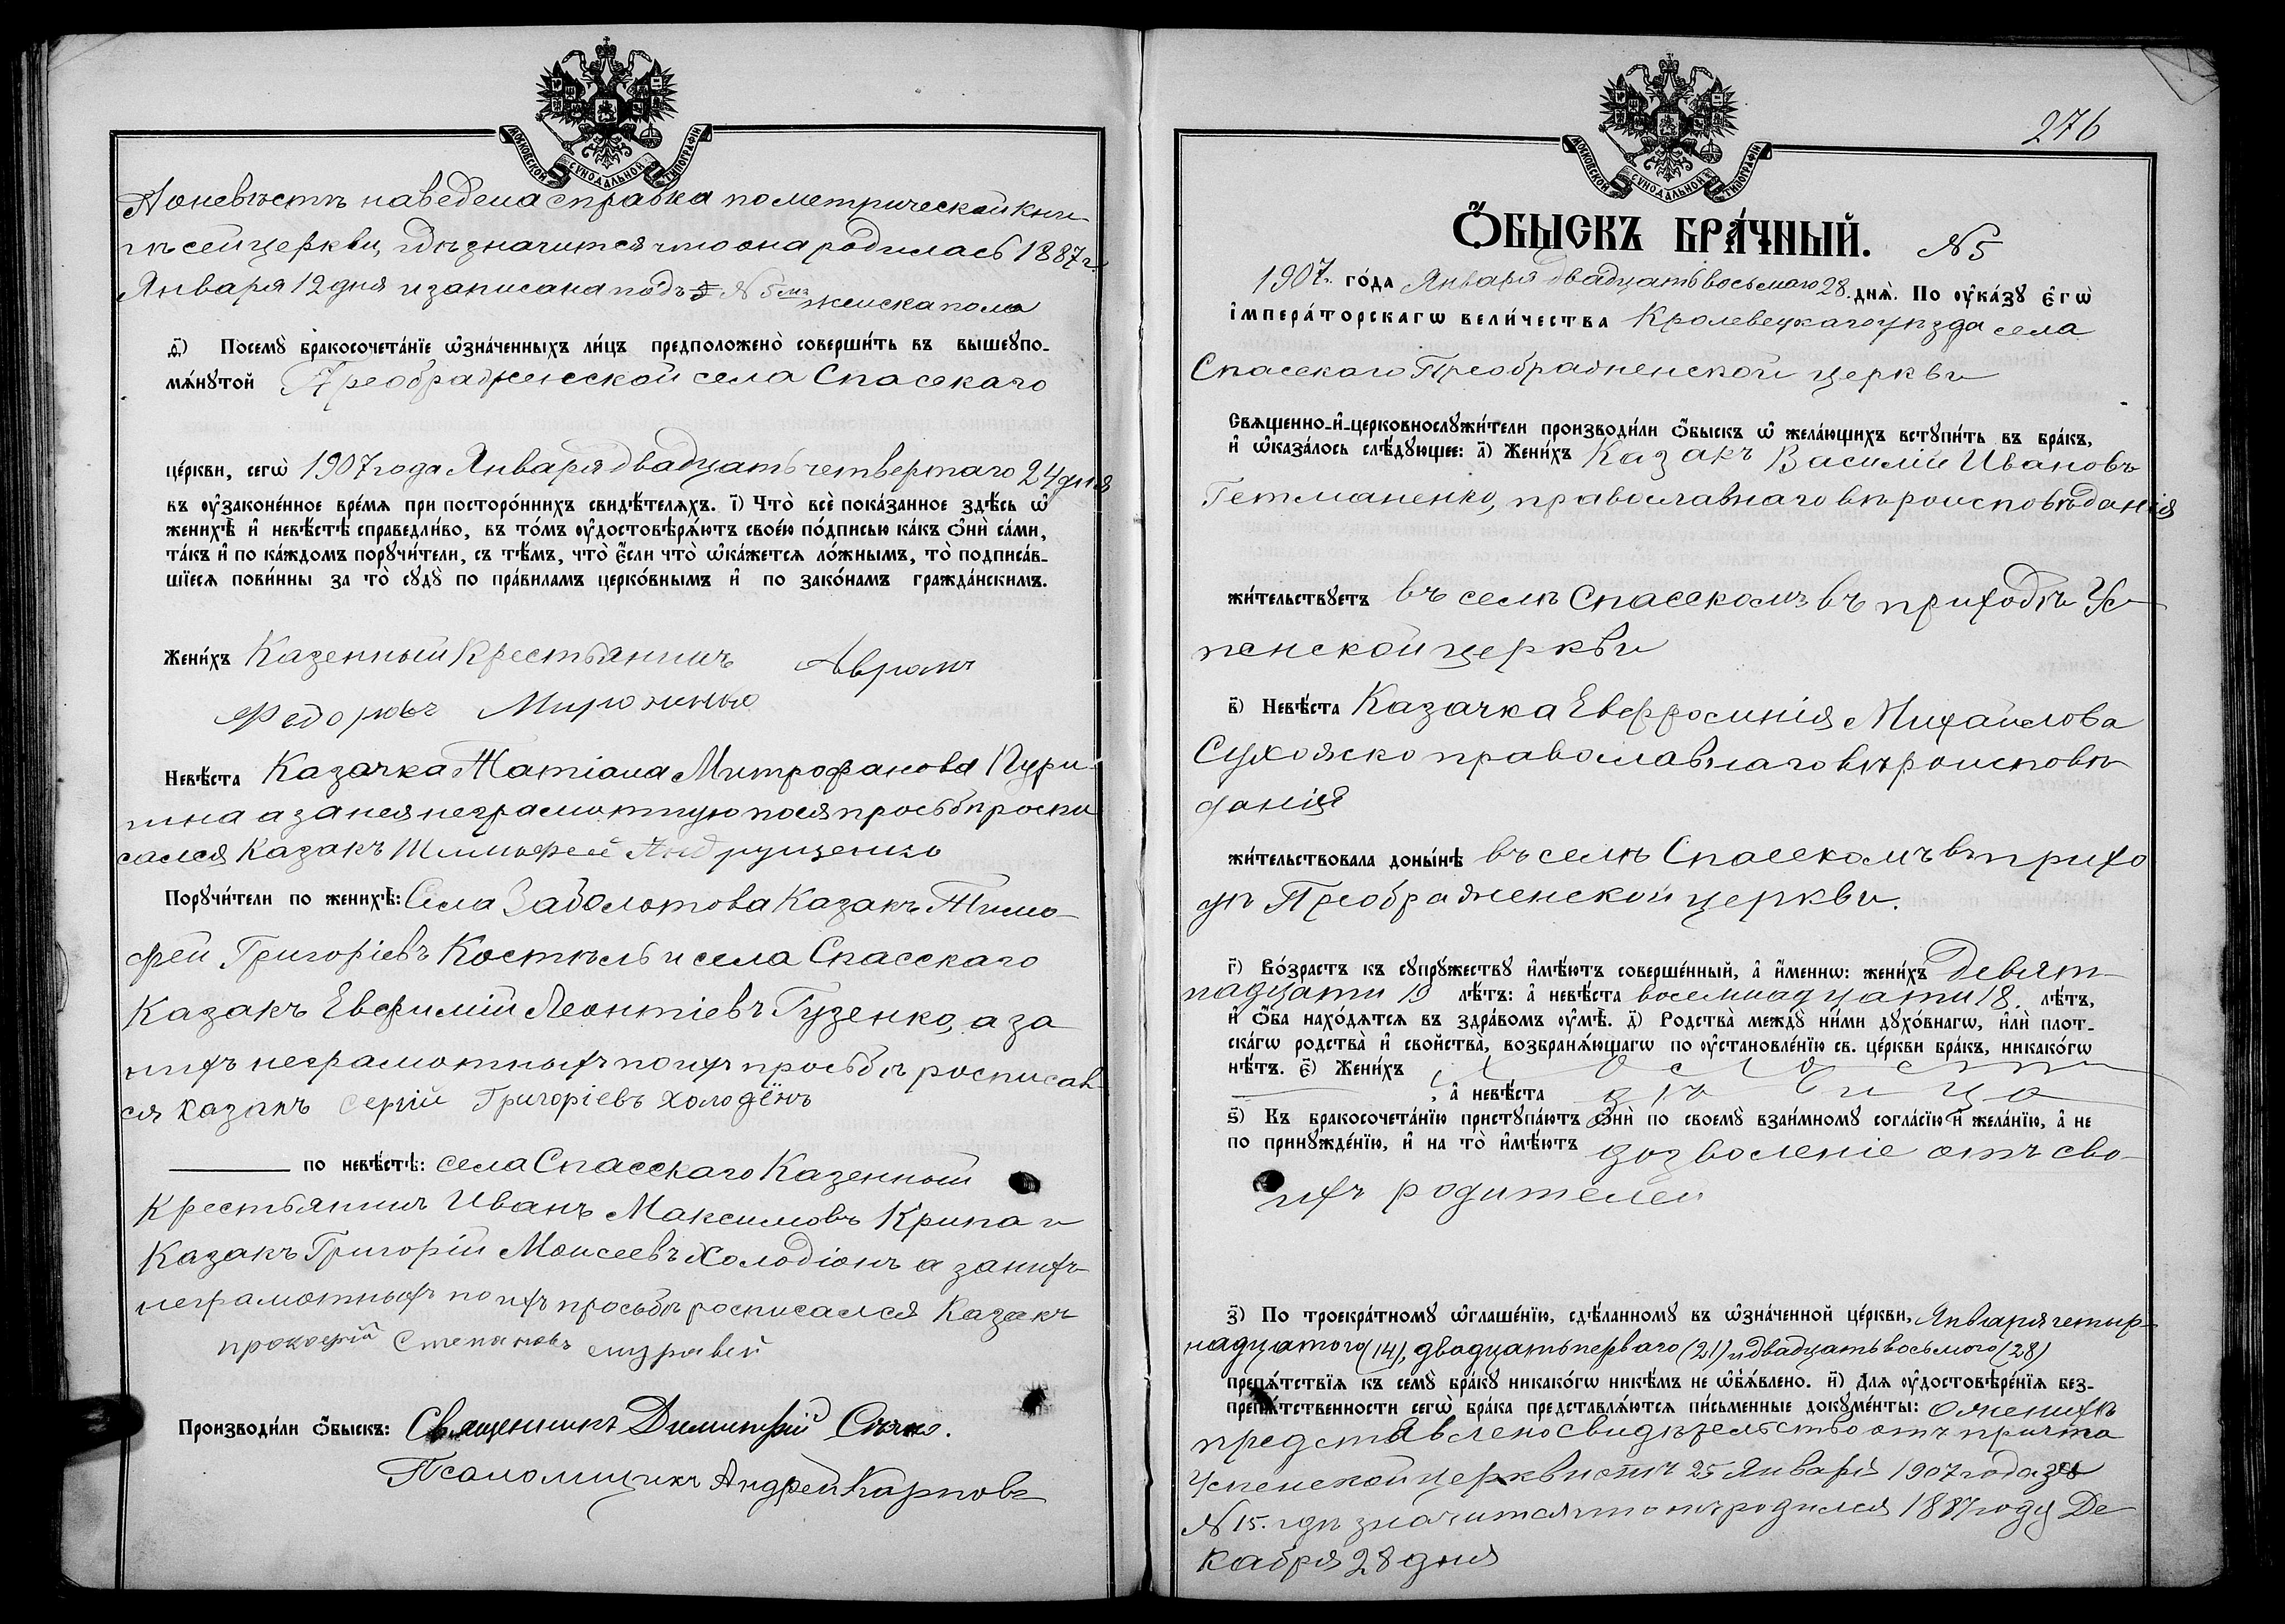 МОСКОВСКОЙ СѴНОДАЛЬНОЙ ТИПОГРАФІИ
А о невѣстѣ наведена справка по метрической кни-
гѣ сей церкви, гдѣ значится что она родилась 1887 г.
Января 12 дня и записана подъ № 5 женска пола
д҃) Посемꙋ̀ бракосочета́нїе ѡ҆зна́ченныхъ ли́цъ предположено̀ соверши́ть въ вышеꙋпо-
мѧ́нꙋтой Преображенской села Спасскаго
це́ркви, сегѡ̀ 1907 года Января двадцать четвертаго 24 дня
въ ᲂу҆зако́не́нное вре́мѧ при посторо́ннихъ свидѣ́телѧхъ. і҃) Что̀ всѐ пока́занное здѣ́сь ѡ҆
женихѣ̀ и҆ невѣ́стѣ справедли́во, въ то́мъ ᲂу҆достовѣрѧ́ютъ свое́ю по́дписью ка́къ ѻ҆нѝ са́ми,
та́къ и҆ по ка́ждомъ порꙋчи́тели, съ тѣ́мъ, что̀ є҆́сли что̀ ѡ҆ка́жетсѧ ло́жнымъ, то̀ подписа́в-
шїесѧ пови́нны за то̀ сꙋдꙋ̀ по пра́виламъ церко́внымъ и҆ по зако́намъ гражда́нскимъ.
Жени́хъ Казенный Крестьянинъ Аврамъ
Федоровъ Мироненко
Невѣ́ста Казачка Татіана Митрофанова Кури-
на а за нея неграмотную по ея просьбѣ роспи
сался Казакъ Тимофей Андрущенко
Порꙋчи́тели по женихѣ̀: Села Заболотова Казакъ Тимо-
фей Григоріевъ Костель и села Спасскаго
Казакъ Евфимій Леонтіевъ Гузенко, а за
нихъ неграмотныхъ по ихъ просьбѣ росписал
ся казакъ Сергій Григоріевъ Холодёнъ
по невѣ́стѣ: села Спасскаго Казенный
Крестьянинъ Иванъ Максимовъ Крипа и
Казакъ Григорій Моисеевъ Холодіонъ а за нихъ
неграмотныхъ по ихъ просьбѣ росписался Казакъ
Прокофій Степановъ Муравей
Производи́ли ѻ҆́быскъ: Священникъ Димитрій Сѣчко.
Псаломщикъ Андрей Карповъ
276
МОСКОВСКОЙ СѴНОДАЛЬНОЙ ТИПОГРАФІИ
Ѻ҆́БЫСКЪ БРА́ЧНЫЙ. № 5
1907 г. го́да Января двадцать восьмаго 28. днѧ̀. По ᲂу҆ка́зꙋ є҆гѡ̀
і҆мпера́торскагѡ вели́чества Кролевецкаго уѣзда села
Спасскаго Преображенской церкви
Свѧщенно-и҆-церковнослꙋжи́тели производи́ли ѻ҆́быскъ ѡ҆ жела́ющихъ встꙋпи́ть въ бра́къ,
и҆ ѡ҆каза́лось слѣ́дꙋющее: а҃) Жени́хъ Казакъ Василій Ивановъ
Гетманенко, православнаго вѣроисповѣданія
жи́тельствꙋетъ въ селѣ Спасскомъ въ приходѣ Ус-
пенской церкви
в҃) Невѣ́ста Казачка Евфросинія Михайлова
православнаго вѣроисповѣ
данія
жи́тельствовала доны́нѣ въ селѣ Спасскомъ въ прихо
дѣ Преображенской церкви.
г҃) Во́зрастъ къ сꙋпрꙋ́жествꙋ и҆мѣ́ютъ соверше́нный, а҆ и҆́меннѡ: жени́хъ Девят-
надцати 19 лѣ́тъ: а҆ невѣ́ста восемнадцати 18. лѣ́тъ,
и҆ ѻ҆́ба нахо́дѧтсѧ въ здра́вомъ ᲂу҆мѣ̀. д҃) Родства̀ междꙋ̀ ни́ми дꙋхо́внагѡ, и҆лѝ плот-
ска́гѡ родства̀ и҆ свойства̀, возбранѧ́ющагѡ по ᲂу҆становле́нїю св. це́ркви бра́къ, никако́гѡ
нѣ́тъ. є҃) Жени́хъ холостъ
, а҆ невѣ́ста дѣвица
ѕ҃) Къ бракосочета́нїю пристꙋпа́ютъ ѻ҆нѝ по своемꙋ̀ взаи́мномꙋ согла́сїю и҆ жела́нїю, а҆ не
по принꙋжде́нїю, и҆ на то̀ и҆мѣ́ютъ дозволеніе отъ сво-
ихъ родителей
з҃) По троекра́тномꙋ ѡ҆глаше́нїю, сдѣ́ланномꙋ въ ѡ҆зна́ченной це́ркви, Января четыр-
надцатого (14), двадцать перваго (21) и двадцать восьмого (28)
препѧ́тствїѧ къ семꙋ̀ бра́кꙋ никако́гѡ никѣ́мъ не ѡ҆б̾ѧ́влено. и҃) Длѧ ᲂу҆достовѣре́нїѧ без-
препѧ́тственности сегѡ̀ бра́ка представлѧ́ютсѧ пи́сьменные докꙋме́нты: о женихѣ
представлено свидѣтельство отъ причта
Успенской церкви отъ 25 Января 1907 года за
№ 15. гдѣ значится что онъ родился 1887 году Де-
кабря 28 дня